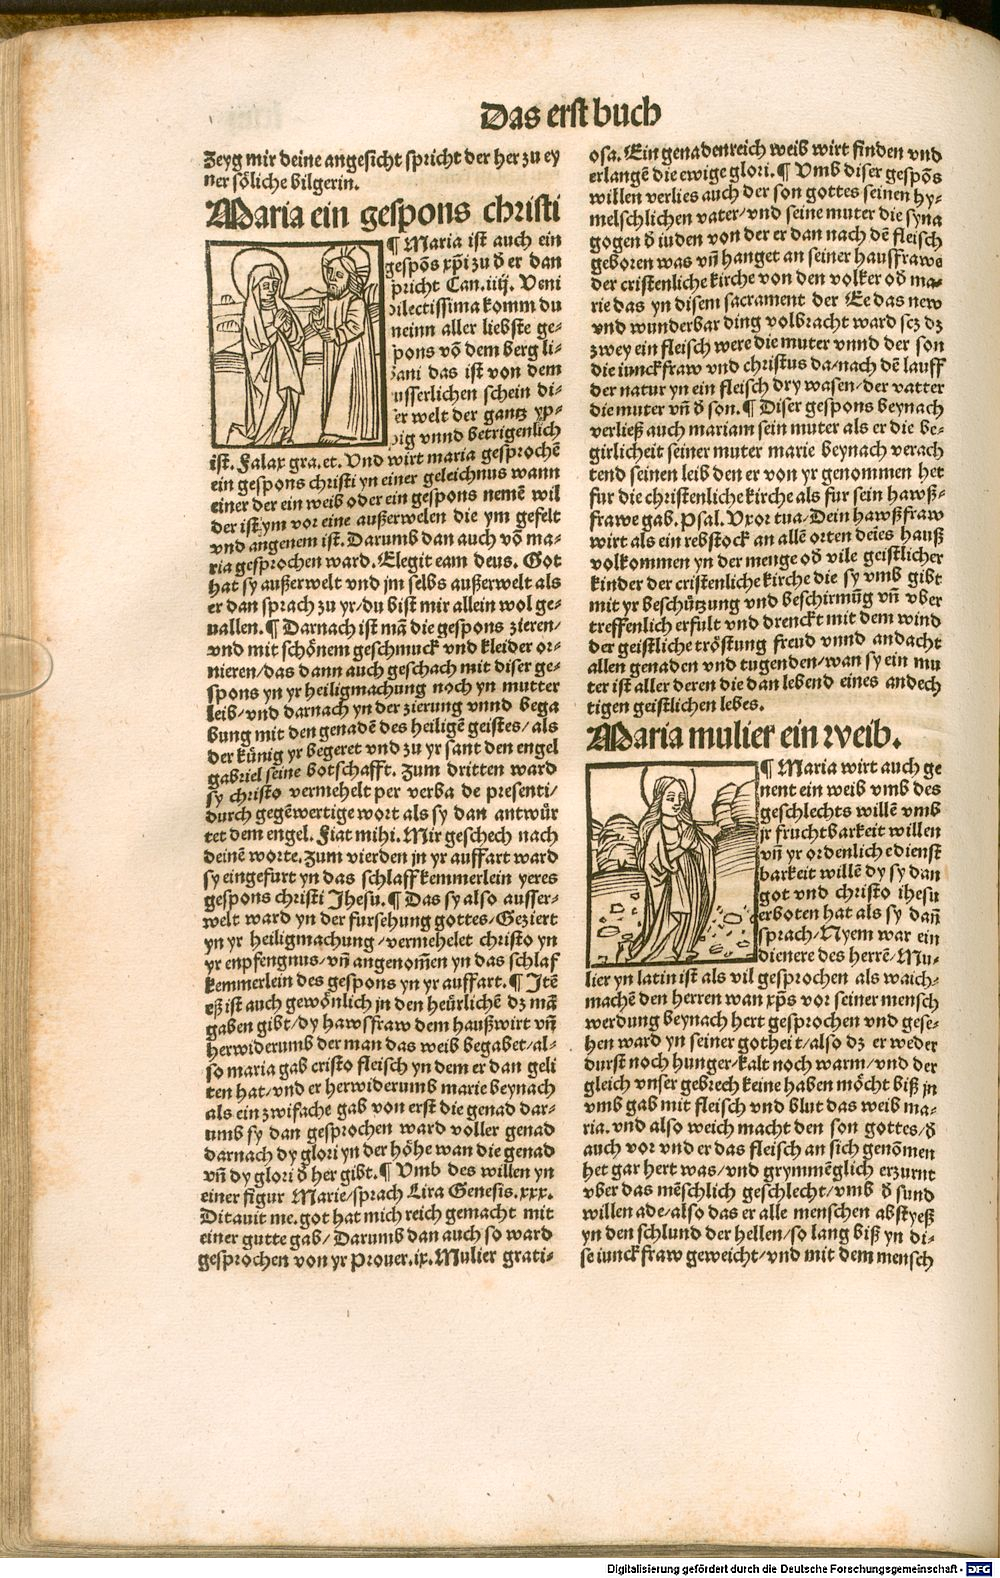 Das erst buch
Zeyg mir deine angesicht spricht der her zu ey
ner söliche bilgerin.
Maria ein gespons christi
¶ Maria ist auch ein
gespõs xp̃i zu d̃ er dan
spricht Can. iiij. Veni
dilectissima komm du
meinn aller liebste ge⸗
spons võ dem berg li⸗
bani das ist von dem
ausserlichen schein di⸗
ser welt der gantz yp⸗
pig vnnd betrigenlich
ist. Falax gra. et. Vnd wirt maria gesprochẽ
ein gespons christi yn einer geleichnus wann
einer der ein weib oder ein gespons nemẽ wil
der ist ym vor eine außerwelen die ym gefelt
vnd angenem ist. Darumb dan auch võ ma⸗
ria gesprochen ward. Elegit eam deus. Got
hat sy außerwelt vnd jm selbs außerwelt als
er dan sprach zu yr/du bist mir allein wol ge⸗
uallen. ¶ Darnach ist mã die gespons zieren/
vnd mit schönem geschmuck vnd kleider or⸗
nieren/das dann auch geschach mit diser ge⸗
spons yn yr heiligmachung noch yn mutter
leib/vnd darnach yn der zierung vnnd bega
bung mit den genadẽ des heiligẽ geistes/als
der künig yr begeret vnd zu yr sant den engel
gabriel seine botschafft. Zum dritten ward
sy christo vermehelt per verba de presenti/
durch gegẽwertige wort als sy dan antwür
tet dem engel. Fiat mihi. Mir geschech nach
deinẽ worte. Zum vierden jn yr auffart ward
sy eingefurt yn das schlaff kemmerlein yeres
gespons christi Jhesu. ¶ Das sy also ausser⸗
welt ward yn der fursehung gottes/Geziert
yn yr heiligmachung/vermehelet christo yn
yr enpfengnus/vñ angenom̃en yn das schlaf
kemmerlein des gespons yn yr auffart. ¶ Jtẽ
eß ist auch gewönlich jn den heürlichẽ dz mã
gaben gibt/dy hawsfraw dem haußwirt vñ
herwiderumb der man das weib begabet/al⸗
so maria gab cristo fleisch yn dem er dan geli
ten hat/vnd er herwiderumb marie beynach
als ein zwifache gab von erst die genad dar⸗
umb sy dan gesprochen ward voller genad
darnach dy glori yn der höhe wan die genad
vñ dy glori d̃ her gibt. ¶ Vmb des willen yn
einer figur Marie/sprach Lira Genesis. xxx.
Ditauit me. got hat mich reich gemacht mit
einer gutte gab/Darumb dan auch so ward
gesprochen von yr Prouer. ix. Mulier grati⸗
osa. Ein genadenreich weib wirt finden vnd
erlangẽ die ewige glori. ¶ Vmb diser gespõs
willen verlies auch der son gottes seinen hy⸗
melschlichen vater/vnd seine muter die syna
gogen d̃ iuden von der er dan nach dẽ fleisch
geboren was vñ hanget an seiner hausfrawe
der cristenliche kirche von den volker od̃ ma⸗
rie das yn disem sacrament der Ee das new
vnd wunderbar ding volbracht ward scz dz
zwey ein fleisch were die muter vnnd der son
die iunckfraw vnd christus da⸗nach dẽ lauff
der natur yn ein fleisch dry wasen/der vatter
die muter vñ d̃ son. ¶ Diser gespons beynach
verließ auch mariam sein muter als er die be⸗
girlicheit seiner muter marie beynach verach
tend seinen leib den er von yr genommen het
fur die christenliche kirche als fur sein hawß⸗
frawe gab. Psal. Vxor tua/Dein hawßfraw
wirt als ein rebstock an allẽ orten deĩes hauß
volkommen yn der menge od̃ vile geistlicher
kinder der cristenliche kirche die sy vmb gibt
mit yr beschützung vnd beschirmũg vñ vber
treffenlich erfult vnd drenckt mit dem wind
der geistliche tröstung freud vnnd andacht
allen genaden vnd tugenden/wan sy ein mu
ter ist aller deren die dan lebend eines andech
tigen geistlichen lebes.
Maria mulier ein weib.
¶ Maria wirt auch ge
nent ein weib vmb des
geschlechts willẽ vmb
jr fruchtbarkeit willen
vñ yr ordenliche dienst
barkeit willẽ dy sy dan
got vnd christo ihesu
erboten hat als sy dañ
sprach/Nyem war ein
dienere des herrẽ/Mu⸗
lier yn latin ist als vil gesprochen als waich⸗
machẽ den herren wan xp̃s vor seiner mensch
werdung beynach hert gesprochen vnd gese⸗
hen ward yn seiner gotheit/also dz er weder
durst noch hunger/kalt noch warm/vnd der
gleich vnser gebrech keine haben möcht biß jn
vmb gab mit fleisch vnd blut das weib ma⸗
ria. vnd also weich macht den son gottes/d̃
auch vor vnd er das fleisch an sich genõmen
het gar hert was/vnd grymmẽglich erzurnt
vber das mẽschlich geschlecht/vmb d̃ sund
willen ade/also das er alle menschen abstyeß
yn den schlund der hellen/so lang biß yn di⸗
se iunckfraw geweicht/vnd mit dem mensch
Digitalisierung gefördert durch die Deutsche Forschungsgemeinschaft - DFG